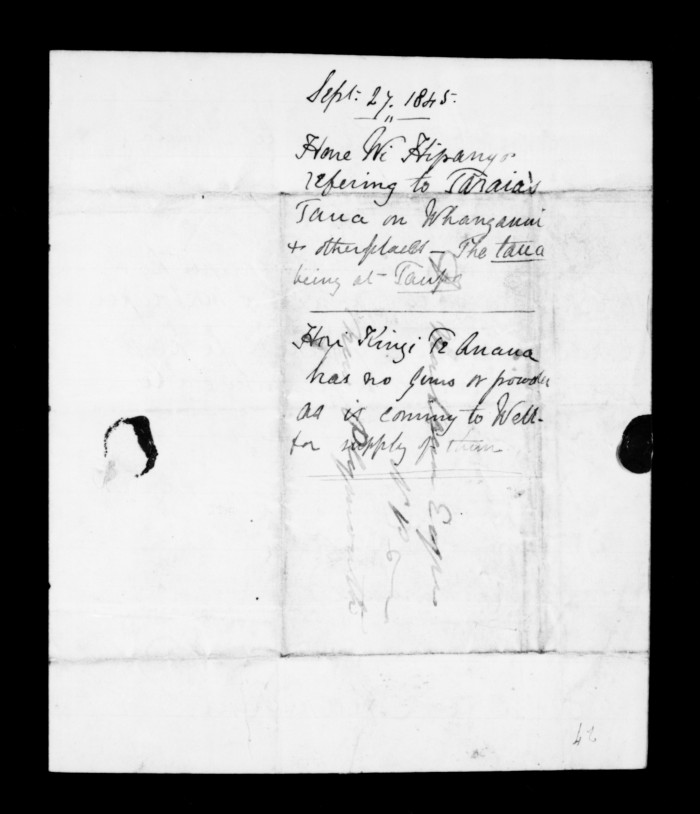 Sept. 27. 1845.
Hone Wi Hipango
refering to Taraia's
Taua on Whanganui
& other places – The taua
being at Taupo
Hori Kingi Te Anaua
has no guns or powder
as is coming to Well-
for supply of them
42